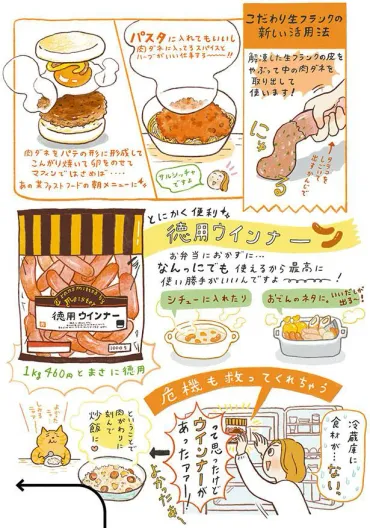 こだわり生フランクの
新しい活用法
解凍した生フランクの皮を
やぶって中の肉ダネを
取り出して
使います!
にゅ〜る
しごいて
出すかんじ
パスタに入れてもいいし
肉ダネに入ってるスパイスと
ハーブがいい仕事する〜〜〜!!
サルシッチャ
ですよ
肉ダネをパテの形に形成して
こんがり焼いて卵をのせて
マフィンではさめば‥‥
あの某ファストフードの朝メニューに
とにかく便利
徳用ウインナー
お弁当におかずに…
なんっにでも使えるから最高に
使い勝手がいいんですよ〜〜〜!
シチューに入れたり
おでんのネタに、いいだしが
出る〜!
徳用ウインナー
1000g
1kg460円とまさに徳用
危機も救ってくれちゃう
冷蔵庫に
食材が…
ない。
って思ったけど
ウインナーが
あったァァー!
よかったぁ〜
ということで
肉がわりに
刻んで
炒飯に